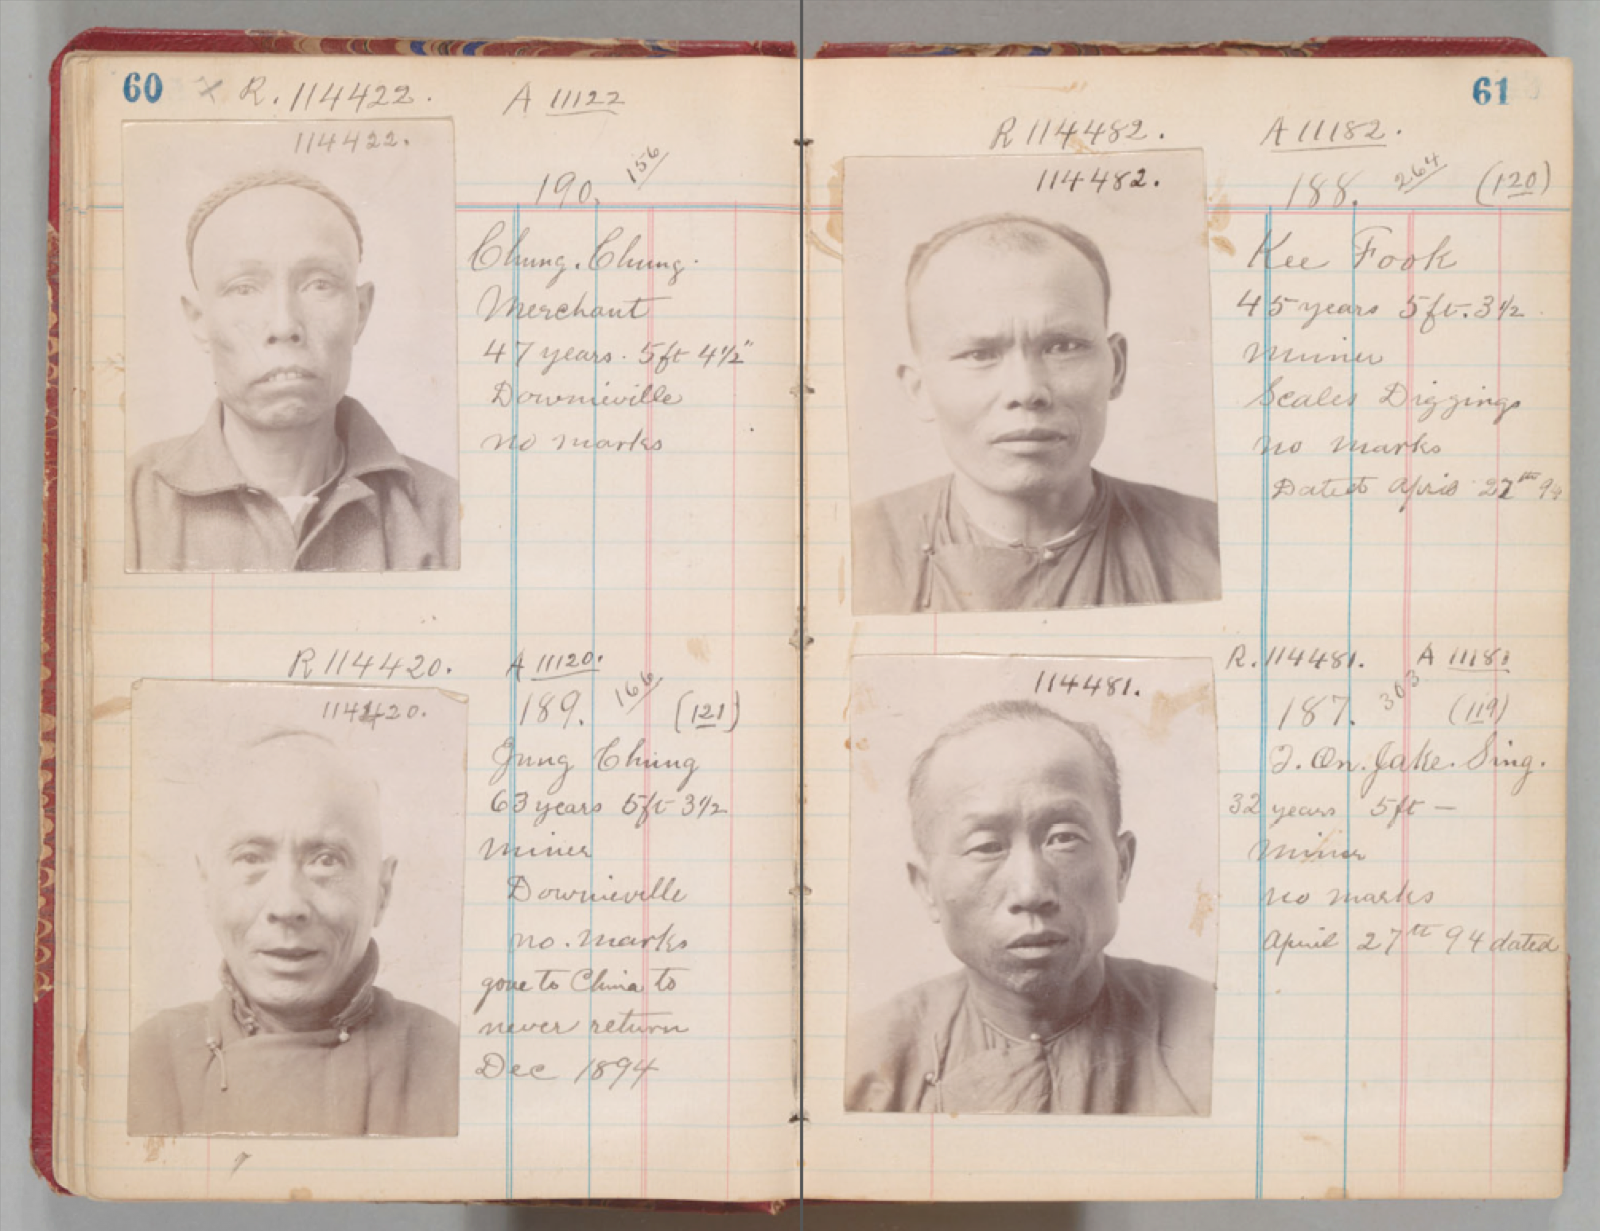 60
R. 114422.
A 11122
114422.
190.
156
Chung. Chung.
Merchant
47 years. 5ft 4½"
Downieville
no marks
R 114420.
A 11120.
114420.
189.
166
(121)
Gung Chung
63 years 5ft 3½
miner
Downieville
no. marks
gone to China to
never return
Dec 1894
61
R 114482.
A 11182.
114482.
188.
264
(120)
Kee Fook
45 years 5ft. 3½
miner
Scales Diggings
no marks
Dated April 27th 94
R. 114481.
A 11181
114481.
187.
303
(119)
On. Jake. Sing.
32 years 5ft —
miner
no marks
April 27th 94 dated